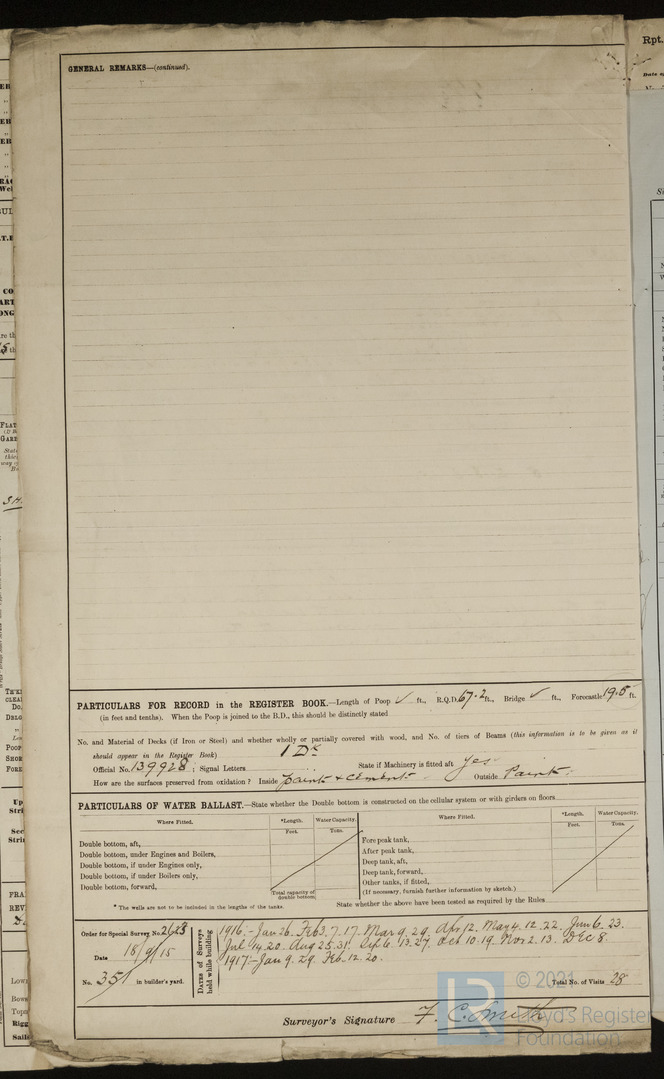 GENERAL REMARKS—(continued).
Rpt.
PARTICULARS FOR RECORD in the REGISTER BOOK.—Length of Poop ✓ ft., R.Q.D. 67.2 ft., Bridge ✓ ft., Forecastle 19.5 ft.
(in feet and tenths). When the Poop is joined to the B.D., this should be distinctly stated
No. and Material of Decks (if Iron or Steel) and whether wholly or partially covered with wood, and No. of tiers of Beams (this information is to be given as it
should appear in the Register Book) 1 Dk
Official No. 139928; Signal Letters State if Machinery is fitted aft Yes
How are the surfaces preserved from oxidation? Inside paint & cement Outside Paint.
PARTICULARS OF WATER BALLAST.—State whether the Double bottom is constructed on the cellular system or with girders on floors
Where Fitted. *Length. Water Capacity. Where Fitted. *Length. Water Capacity.
Feet. Tons. Feet. Tons.
Double bottom, aft,
Double bottom, under Engines and Boilers,
Double bottom, if under Engines only,
Double bottom, if under Boilers only,
Double bottom, forward,
Total capacity of double bottom
Fore peak tank,
After peak tank,
Deep tank, aft,
Deep tank, forward,
Other tanks, if fitted,
(If necessary, furnish further information by sketch.)
* The wells are not to be included in the lengths of the tanks.
State whether the above have been tested as required by the Rules
Order for Special Survey No. 2623
Date 18/9/15
No. 351 in builder's yard.
Dates of Surveys held while building
1916:- Jan 26. Feb 3. 7. 17. Mar 9. 29. Apr 12. May 4. 12. 22. Jun 6. 23.
Jul 14. 20. Aug 25. 31. Sep 6. 13. 27. Oct 10. 19. Nov 2. 13. DEC 8.
1917:- Jan 9. 29. Feb. 12. 20.
Total No. of Visits 28
Surveyor's Signature F. C. Smith
© 2021
Lloyd's Register
Foundation